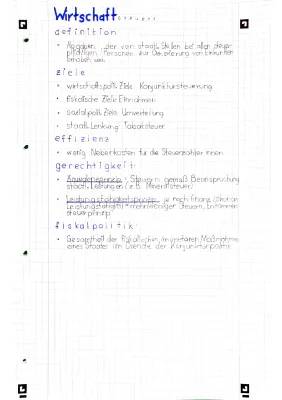 Wirtschaft Steuern
definition
• Abgaben, der von staatl. Stellen bei allen steuer-
pflichtigen Personen zur Generierung von Einkünften
erhoben wer
ziele
• wirtschaftspolit. Ziele: Konjunktursteuerung
• fiskalische Ziele: Einnahmen
• sozialpolit. Ziele: Umverteilung
• staatl. Lenkung: Tabaksteuer
effizienz
• wenig Nebenkosten für die Steuerzahler:innen
gerechtigkeit:
• Äquivalenzprinzip: Steuern gemäß Beanspruchung
staatl. Leistungen (z.B. Mineralsteuer)
• Leistungsfähigkeitsprinzip: je nach finanz. Situation
Leistungsfähigkeit = mehr/weniger Steuern, Einkommen-
steuerprinzip
fiskalpolitik:
• Gesamtheit der fiskalischen, Maßnahmen
eines Staates im Dienste der Konjunkturpolitik